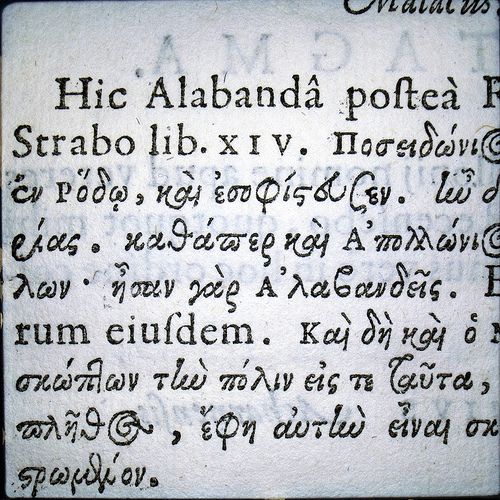 Hic Alabandâ poſteà
Strabo lib. XIV. Ποσειδώνι
ἐν Ρόδῳ, καὶ ἐσοφίστευεν. ἰὼ
ρίας. καθάπερ καὶ Ἀπολλώνι
λων· ἦσαν γὰρ Ἀλαβανδεῖς.
rum eiuſdem. Καὶ δὴ καὶ ὁ
σκώπτων τὴν πόλιν εἰς τε ταῦτα,
πλῆθος, ἔφη αὐτὴν εἶναι